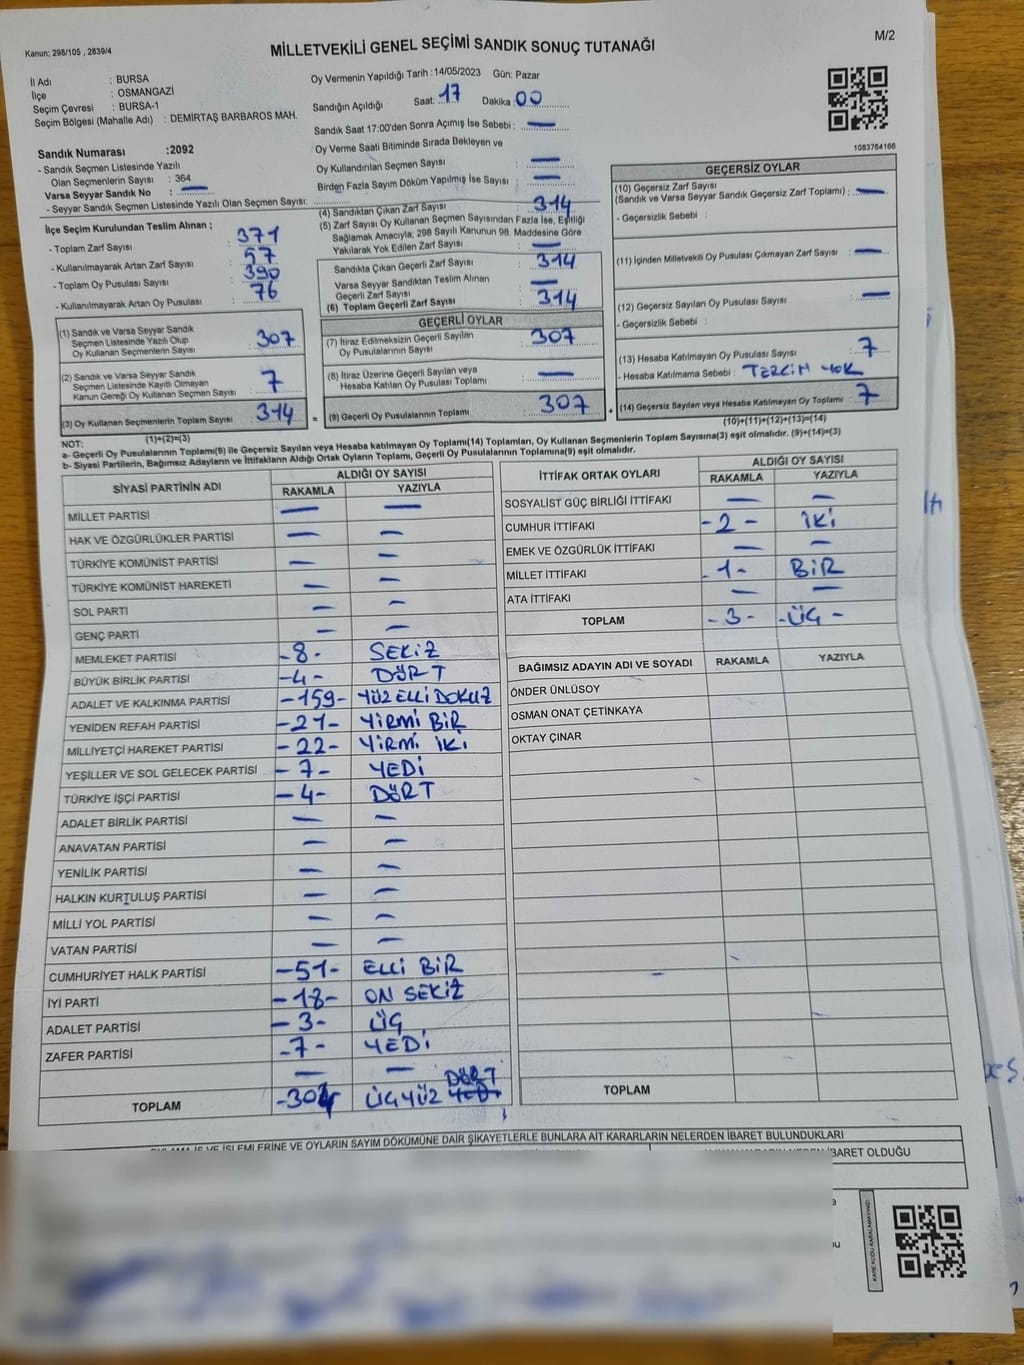 Kanun; 298/105 , 2839/4
MİLLETVEKİLİ GENEL SEÇİMİ SANDIK SONUÇ TUTANAĞI
M/2
İl Adı : BURSA
İlçe : OSMANGAZİ
Seçim Çevresi : BURSA-1
Seçim Bölgesi (Mahalle Adı) : DEMİRTAŞ BARBAROS MAH.
Oy Vermenin Yapıldığı Tarih :14/05/2023 Gün: Pazar
Sandığın Açıldığı Saat: 17 Dakika: 00
Sandık Saat 17:00'den Sonra Açımış İse Sebebi : —
Oy Verme Saati Bitiminde Sırada Bekleyen ve
Oy Kullandırılan Seçmen Sayısı —
Birden Fazla Sayım Döküm Yapılmış İse Sayısı : —
1083764166
Sandık Numarası :2092
- Sandık Seçmen Listesinde Yazılı
Olan Seçmenlerin Sayısı : 364
Varsa Seyyar Sandık No : —
- Seyyar Sandık Seçmen Listesinde Yazılı Olan Seçmen Sayısı:
İlçe Seçim Kurulundan Teslim Alınan ;
- Toplam Zarf Sayısı : 371
- Kullanılmayarak Artan Zarf Sayısı : 57
- Toplam Oy Pusulası Sayısı : 390
- Kullanılmayarak Artan Oy Pusulası : 76
(1) Sandık ve Varsa Seyyar Sandık
Seçmen Listesinde Yazılı Olup
Oy Kullanan Seçmenlerin Sayısı : 307
(2) Sandık ve Varsa Seyyar Sandık
Seçmen Listesinde Kayıtlı Olmayan
Kanun Gereği Oy Kullanan Seçmen Sayısı : 7
(3) Oy Kullanan Seçmenlerin Toplam Sayısı : 314
(1)+(2)=(3)
(4) Sandıktan Çıkan Zarf Sayısı : 314
(5) Zarf Sayısı Oy Kullanan Seçmen Sayısından Fazla İse, Eşitliği
Sağlamak Amacıyla; 298 Sayılı Kanunun 98. Maddesine Göre
Yakılarak Yok Edilen Zarf Sayısı : —
Sandıkta Çıkan Geçerli Zarf Sayısı : 314
Varsa Seyyar Sandıktan Teslim Alınan
Geçerli Zarf Sayısı : —
(6) Toplam Geçerli Zarf Sayısı : 314
GEÇERLİ OYLAR
(7) İtiraz Edilmeksizin Geçerli Sayılan
Oy Pusulalarının Sayısı : 307
(8) İtiraz Üzerine Geçerli Sayılan veya
Hesaba Katılan Oy Pusulası Toplamı : —
= (9) Geçerli Oy Pusulalarının Toplamı : 307 +
GEÇERSİZ OYLAR
(10) Geçersiz Zarf Sayısı
(Sandık ve Varsa Seyyar Sandık Geçersiz Zarf Toplamı) : —
- Geçersizlik Sebebi :
(11) İçinden Milletvekili Oy Pusulası Çıkmayan Zarf Sayısı : —
(12) Geçersiz Sayılan Oy Pusulası Sayısı : —
- Geçersizlik Sebebi :
(13) Hesaba Katılmayan Oy Pusulası Sayısı : 7
- Hesaba Katılmama Sebebi : TERCİH YOK
(14) Geçersiz Sayılan veya Hesaba Katılmayan Oy Toplamı : 7
(10)+(11)+(12)+(13)=(14)
NOT:
a- Geçerli Oy Pusulalarının Toplamı(9) ile Geçersiz Sayılan veya Hesaba katılmayan Oy Toplamı(14) Toplamları, Oy Kullanan Seçmenlerin Toplam Sayısına(3) eşit olmalıdır. (9)+(14)=(3)
b- Siyasi Partilerin, Bağımsız Adayların ve İttifakların Aldığı Ortak Oyların Toplamı, Geçerli Oy Pusulalarının Toplamına(9) eşit olmalıdır.
SİYASİ PARTİNİN ADI ALDIĞI OY SAYISI
RAKAMLA YAZIYLA
MİLLET PARTİSİ — —
HAK VE ÖZGÜRLÜKLER PARTİSİ — —
TÜRKİYE KOMÜNİST PARTİSİ — —
TÜRKİYE KOMÜNİST HAREKETİ — —
SOL PARTİ — —
GENÇ PARTİ — —
MEMLEKET PARTİSİ -8- SEKİZ
BÜYÜK BİRLİK PARTİSİ -4- DÖRT
ADALET VE KALKINMA PARTİSİ -159- YÜZ ELLİ DOKUZ
YENİDEN REFAH PARTİSİ -21- YİRMİ BİR
MİLLİYETÇİ HAREKET PARTİSİ -22- YİRMİ İKİ
YEŞİLLER VE SOL GELECEK PARTİSİ -7- YEDİ
TÜRKİYE İŞÇİ PARTİSİ -4- DÖRT
ADALET BİRLİK PARTİSİ — —
ANAVATAN PARTİSİ — —
YENİLİK PARTİSİ — —
HALKIN KURTULUŞ PARTİSİ — —
MİLLİ YOL PARTİSİ — —
VATAN PARTİSİ — —
CUMHURİYET HALK PARTİSİ -51- ELLİ BİR
İYİ PARTİ -18- ON SEKİZ
ADALET PARTİSİ -3- ÜÇ
ZAFER PARTİSİ -7- YEDİ
— —
TOPLAM -304 ÜÇYÜZ DÖRT
İTTİFAK ORTAK OYLARI ALDIĞI OY SAYISI
RAKAMLA YAZIYLA
SOSYALİST GÜÇ BİRLİĞİ İTTİFAKI — —
CUMHUR İTTİFAKI -2- İKİ
EMEK VE ÖZGÜRLÜK İTTİFAKI — —
MİLLET İTTİFAKI -1- BİR
ATA İTTİFAKI — —
TOPLAM -3- -ÜÇ-
BAĞIMSIZ ADAYIN ADI VE SOYADI RAKAMLA YAZIYLA
ÖNDER ÜNLÜSOY
OSMAN ONAT ÇETİNKAYA
OKTAY ÇINAR
TOPLAM
OYLAMA İŞ VE İŞLEMLERİNE VE OYLARIN SAYIM DÖKÜMÜNE DAİR ŞİKAYETLERLE BUNLARA AİT KARARLARIN NELERDEN İBARET BULUNDUKLARI
İBARET OLDUĞU
KARE KODU KARALAMAYINIZ!